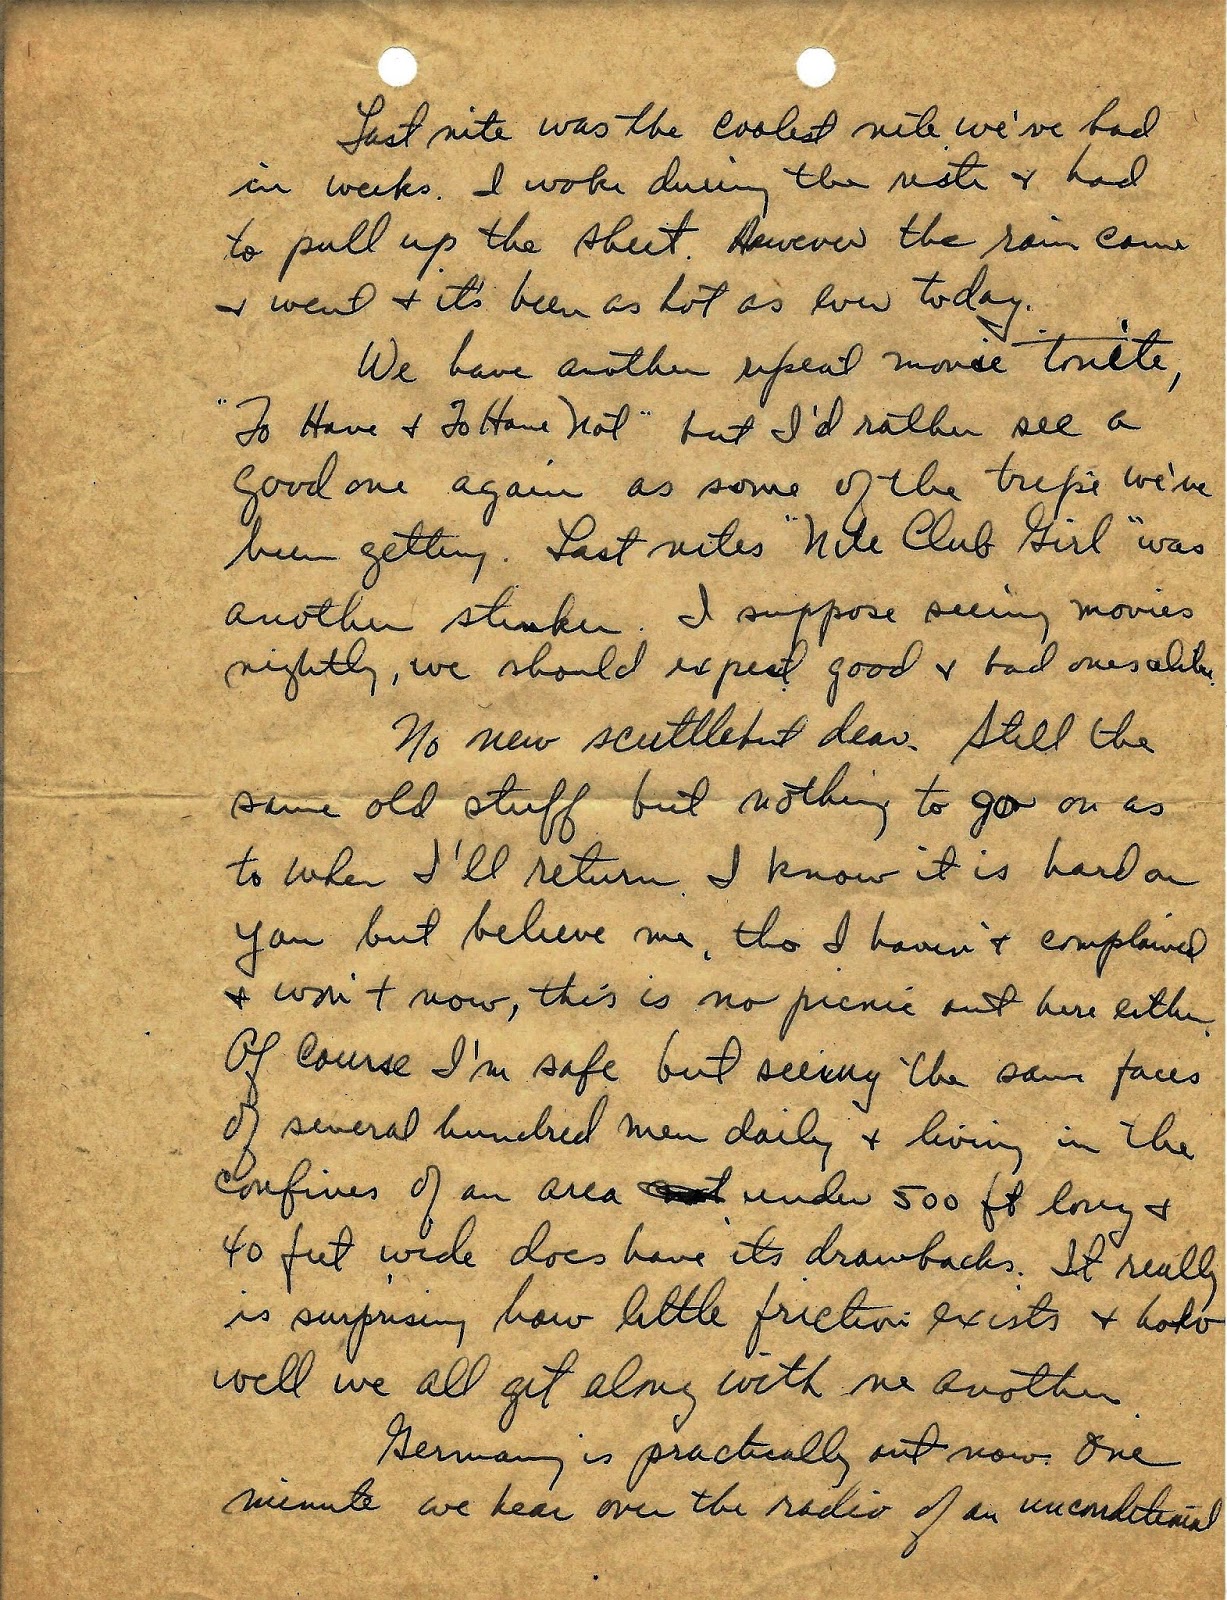 Last nite was the coolest nite we've had
in weeks. I woke during the nite & had
to pull up the sheet. However the rain came
& went & it's been as hot as ever today.
We have another repeat movie tonite,
"To Have & To Have Not" but I'd rather see a
good one again as some of the tripe we've
been getting. Last nites "Nite Club Girl" was
another stinker. I suppose seeing movies
nightly, we should expect good & bad ones alike.
No new scuttlebut dear. Still the
same old stuff but nothing to go on as
to when I'll return. I know it is hard on
you but believe me, tho I haven't complained
& won't now, this is no picnic out here either.
Of course I'm safe but seeing the same faces
of several hundred men daily & living in the
confines of an area under 500 ft long &
40 feet wide does have its drawbacks. It really
is surprising how little friction exists & how
well we all get along with one another.
Germany is practically out now. One
minute we hear over the radio of an unconditional